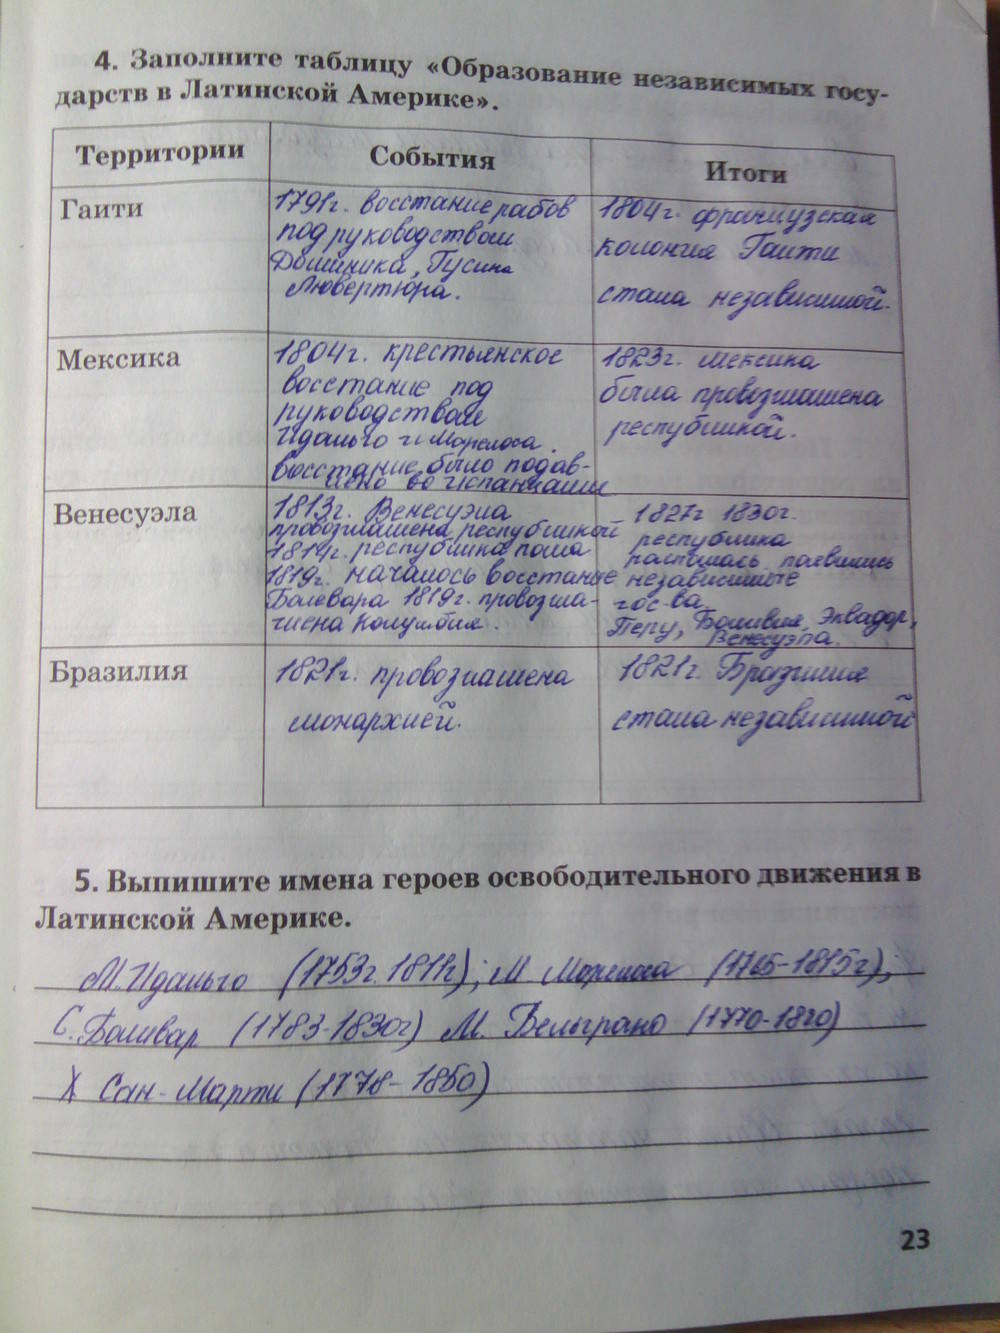 4. Заполните таблицу «Образование независимых госу-
дарств в Латинской Америке».
Территории
События
Итоги
Гаити
1791г. восстание рабов
под руководством
Доминика, Тусина
Лювертюра.
1804г. французская
колония Гаити
стала независимой.
Мексика
1804г. крестьянское
восстание под
руководством
Идальго и Морелоса.
восстание было подав-
лено во испанцами
1823г. Мексика
была провозглашена
республикой.
Венесуэла
1813г. Венесуэла
провозглашена республикой
1814г. республика пошла
1819г. началось восстание
Болевара 1819г. провозгла-
чиена Колумбия.
1827г 1830г.
республика
распалась появились
независимые
гос-ва
Перу, Боливия, Эквадор,
Венесуэла.
Бразилия
1821г. провозглашена
монархией.
1821г. Бразилия
стала независимой
5. Выпишите имена героев освободительного движения в
Латинской Америке.
М. Идальго (1753г. 1811г); М. Морелоса (1765-1815г);
С. Боливар (1783-1830г) М. Бельграно (1770-1820)
Х Сан-Марти (1778-1850)
23